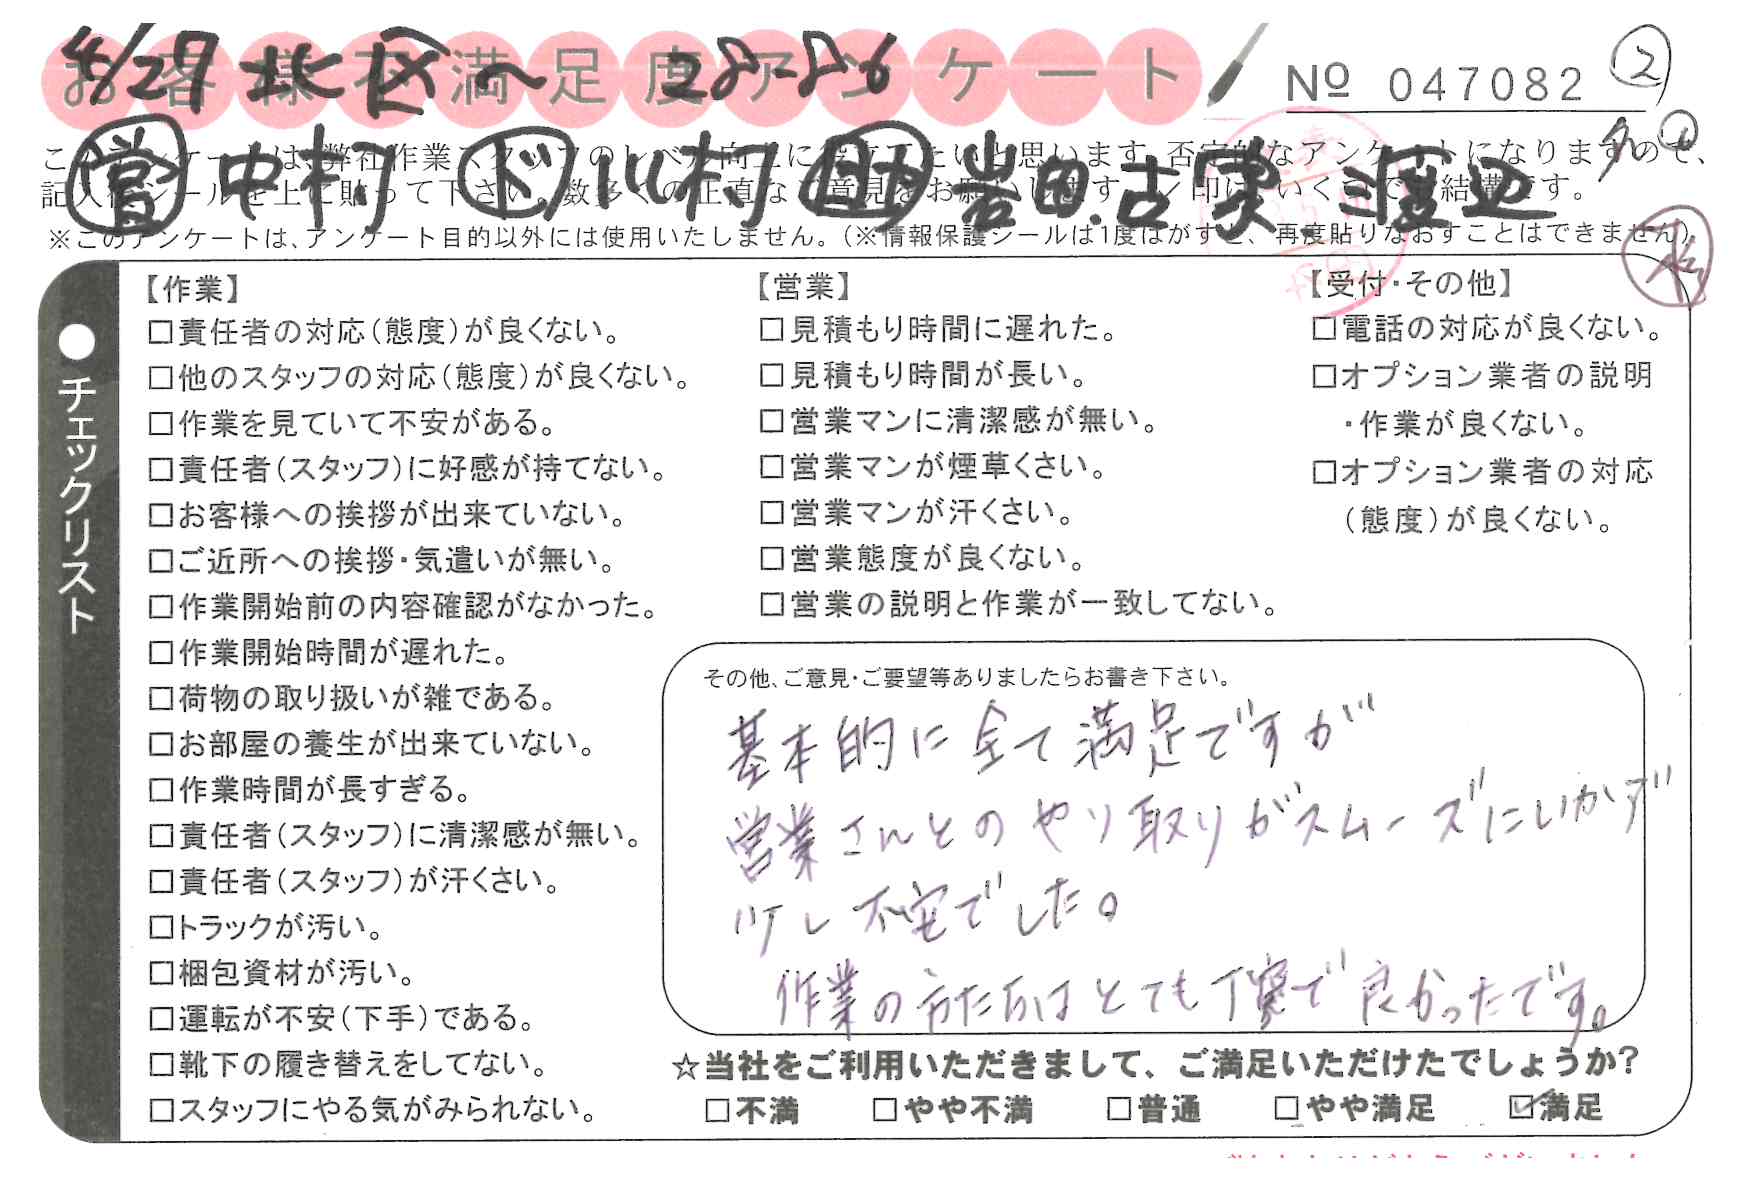 お客様不満足度アンケート
4/27 北区〜 28-286
№ 047082
②
このアンケートは、弊社作業スタッフのレベル向上に役立てたいと思います。否定的なアンケートになりますので、
記入後シールを上に貼って下さい。数多くの正直なご意見をお願いします。レ印はいくつでも結構です。
営 中村 ド 川村 岩田.古実.渡辺
※このアンケートは、アンケート目的以外には使用いたしません。(※情報保護シールは1度はがすと、再度貼りなおすことはできません)
●チェックリスト
【作業】
□責任者の対応(態度)が良くない。
□他のスタッフの対応(態度)が良くない。
□作業を見ていて不安がある。
□責任者(スタッフ)に好感が持てない。
□お客様への挨拶が出来ていない。
□ご近所への挨拶・気遣いが無い。
□作業開始前の内容確認がなかった。
□作業開始時間が遅れた。
□荷物の取り扱いが雑である。
□お部屋の養生が出来ていない。
□作業時間が長すぎる。
□責任者(スタッフ)に清潔感が無い。
□責任者(スタッフ)が汗くさい。
□トラックが汚い。
□梱包資材が汚い。
□運転が不安(下手)である。
□靴下の履き替えをしてない。
□スタッフにやる気がみられない。
【営業】
□見積もり時間に遅れた。
□見積もり時間が長い。
□営業マンに清潔感が無い。
□営業マンが煙草くさい。
□営業マンが汗くさい。
□営業態度が良くない。
□営業の説明と作業が一致してない。
【受付・その他】
□電話の対応が良くない。
□オプション業者の説明
・作業が良くない。
□オプション業者の対応
(態度)が良くない。
その他、ご意見・ご要望等ありましたらお書き下さい。
基本的に全て満足ですが
営業さんとのやり取りがスムーズにいかず
少し不安でした。
作業の方たちはとても丁寧で良かったです。
☆当社をご利用いただきまして、ご満足いただけたでしょうか?
□不満 □やや不満 □普通 □やや満足 ☑満足